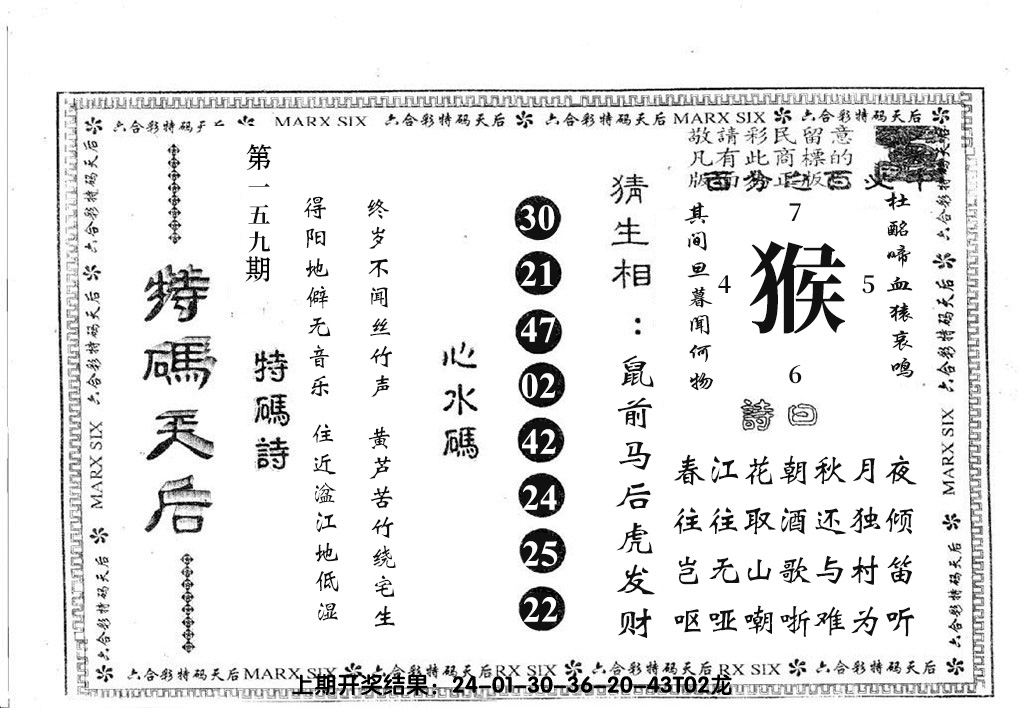 六合彩特码天后 MARX SIX 六合彩特码天后 六合彩特码天后 MARX SIX 六合彩特码天后
敬請彩民留意
凡有此商標的
第一五九期
特碼天后
特碼詩
得阳地僻无音乐 住近湓江地低湿
终岁不闻丝竹声 黄芦苦竹绕宅生
心水碼
30
21
47
02
42
24
25
22
猜生相：鼠前马后虎发财
其间旦暮闻何物
7
4
猴
5
6
杜酩啼血猿哀鸣
詩曰
春江花朝秋月夜
往往取酒还独倾
岂无山歌与村笛
呕哑嘲哳难为听
六合彩特码天后
MARX SIX
六合彩特码天后
六合彩特码天后
六合彩特码天后
MARX SIX
六合彩特码天后
六合彩特码天后MARX SIX 六合彩特码天后RX SIX 六合彩特码天后RX SIX 六合彩特码天后
上期开奖结果：24-01-30-36-20-43T02龙